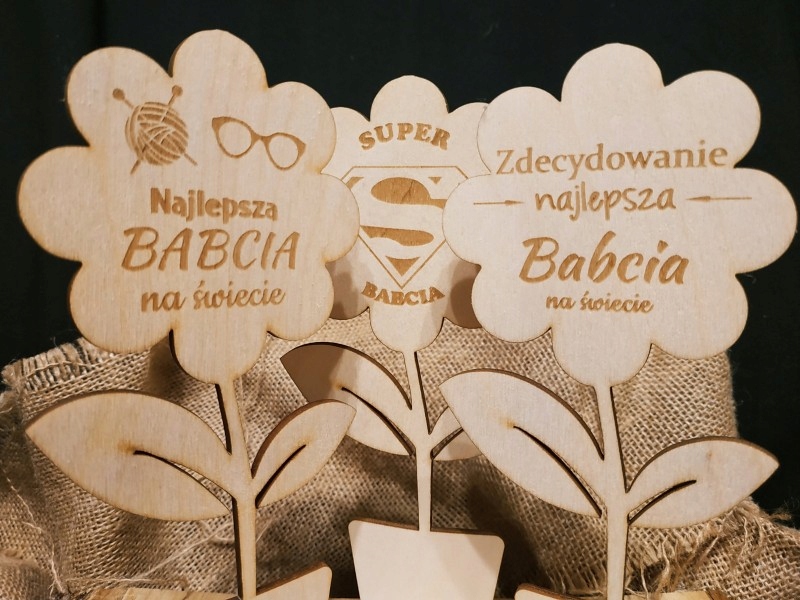 Najlepsza
BABCIA
na świecie
SUPER
S
BABCIA
Zdecydowanie
najlepsza
Babcia
na świecie